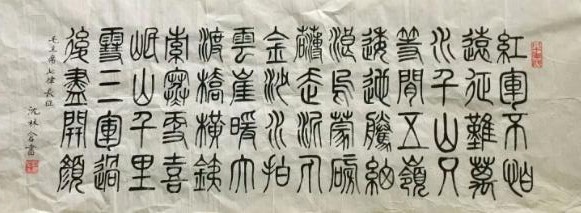 紅軍不怕
遠征難萬
水千山只
等閒五嶺
逶迤騰細
浪烏蒙磅
礴走泥丸
金沙水拍
雲崖暖大
渡橋橫鐵
索寒更喜
岷山千里
雪三軍過
後盡開顏
毛主席七律長征
沈林書